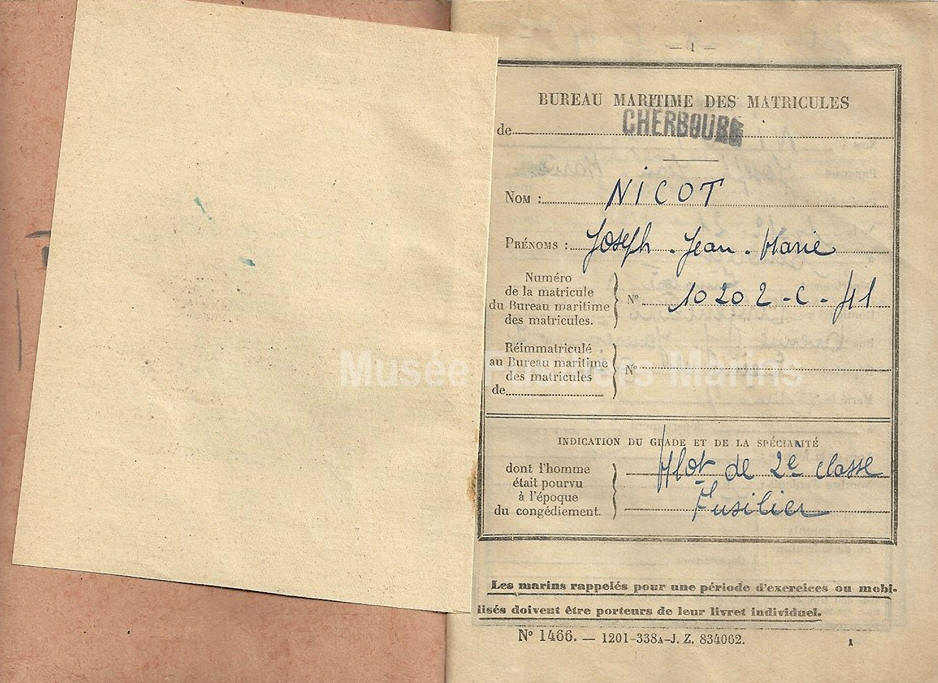 — 1 —
BUREAU MARITIME DES MATRICULES
de CHERBOURG
NOM : NICOT
PRÉNOMS : Joseph - Jean - Marie
Numéro
de la matricule
du Bureau maritime
des matricules.
N° 10202-C-41
Réimmatriculé
au Bureau maritime
des matricules
de
N°
Musée Fusiliers Marins
INDICATION DU GRADE ET DE LA SPÉCIALITÉ
dont l'homme
était pourvu
à l'époque
du congédiement.
Mlot de 2e classe
Fusilier
Les marins rappelés pour une période d'exercices ou mobi-
lisés doivent être porteurs de leur livret individuel.
N° 1466. — 1201-338A-J. Z. 834062.
1